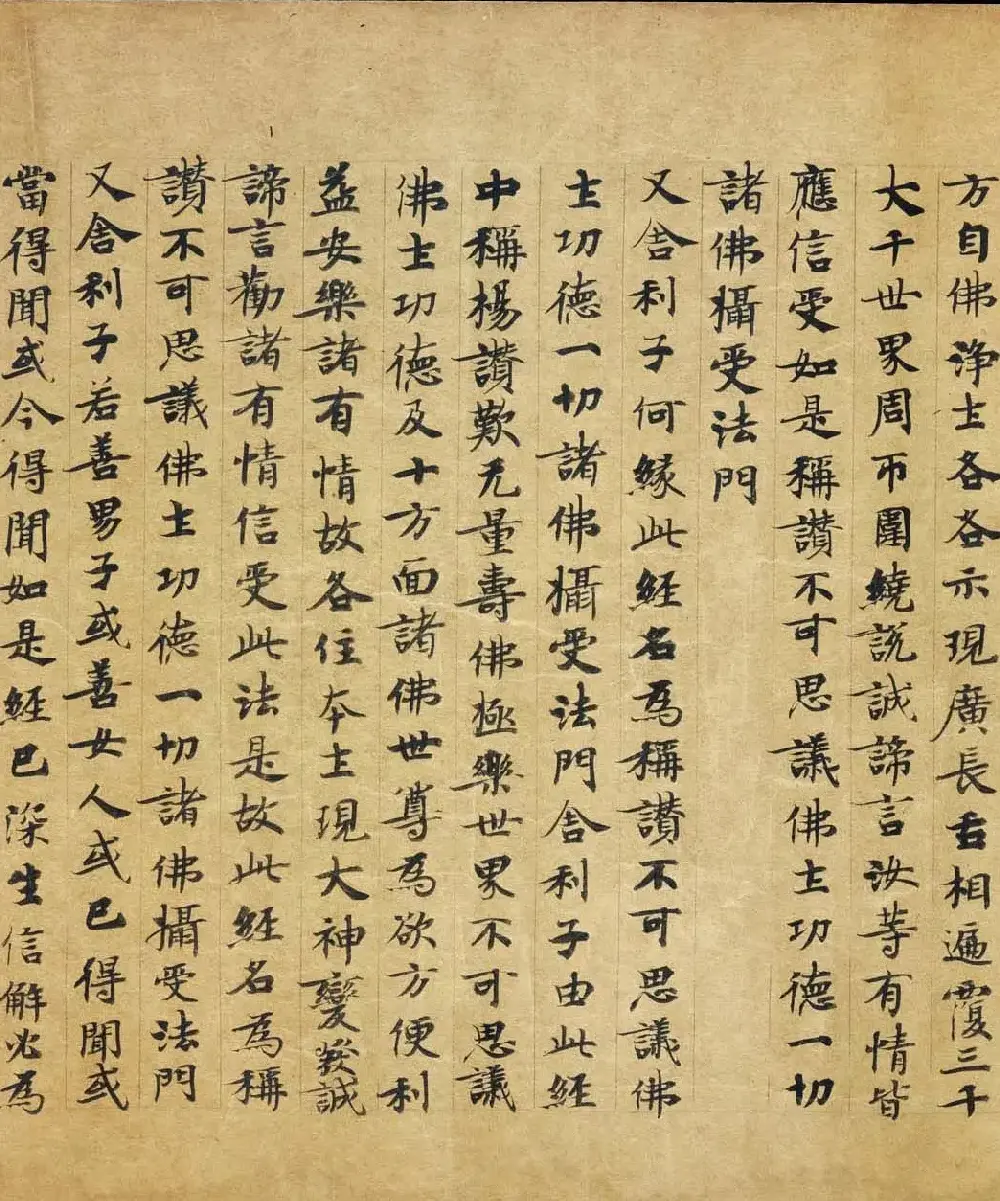 方自佛淨土各各示現廣長舌相遍覆三千
大千世界周帀圍繞說誠諦言汝等有情皆
應信受如是稱讚不可思議佛土功德一切
諸佛攝受法門
又舍利子何緣此經名為稱讚不可思議佛
土功德一切諸佛攝受法門舍利子由此經
中稱楊讚歎无量壽佛極樂世界不可思議
佛土功德及十方面諸佛世尊為欲方便利
益安樂諸有情故各住本土現大神變發誠
諦言勸諸有情信受此法是故此經名為稱
讚不可思議佛土功德一切諸佛攝受法門
又舍利子若善男子或善女人或已得聞或
當得聞或今得聞如是經已深生信解必為